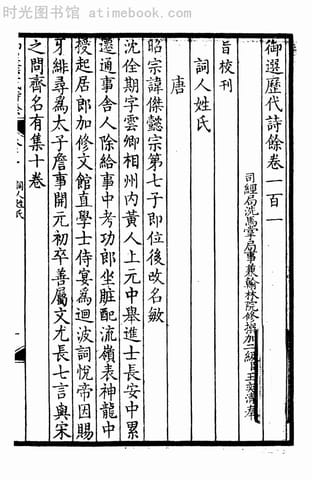 时光图书馆 - www.atimebook.com
御選歷代詩餘卷一百一
司經局洗馬掌局事兼翰林院修撰加二級臣王奕清奉
旨校刊
詞人姓氏
唐
昭宗諱傑懿宗第七子即位後改名敏
沈佺期字雲卿相州內黃人上元中舉進士長安中累
遷通事舍人除給事中考功郎坐贓配流嶺表神龍中
授起居郎加修文館直學士侍宴爲迴波詞悅帝因賜
牙緋尋爲太子詹事開元初卒善屬文尤長七言與宋
之問齊名有集十卷
詞人姓氏